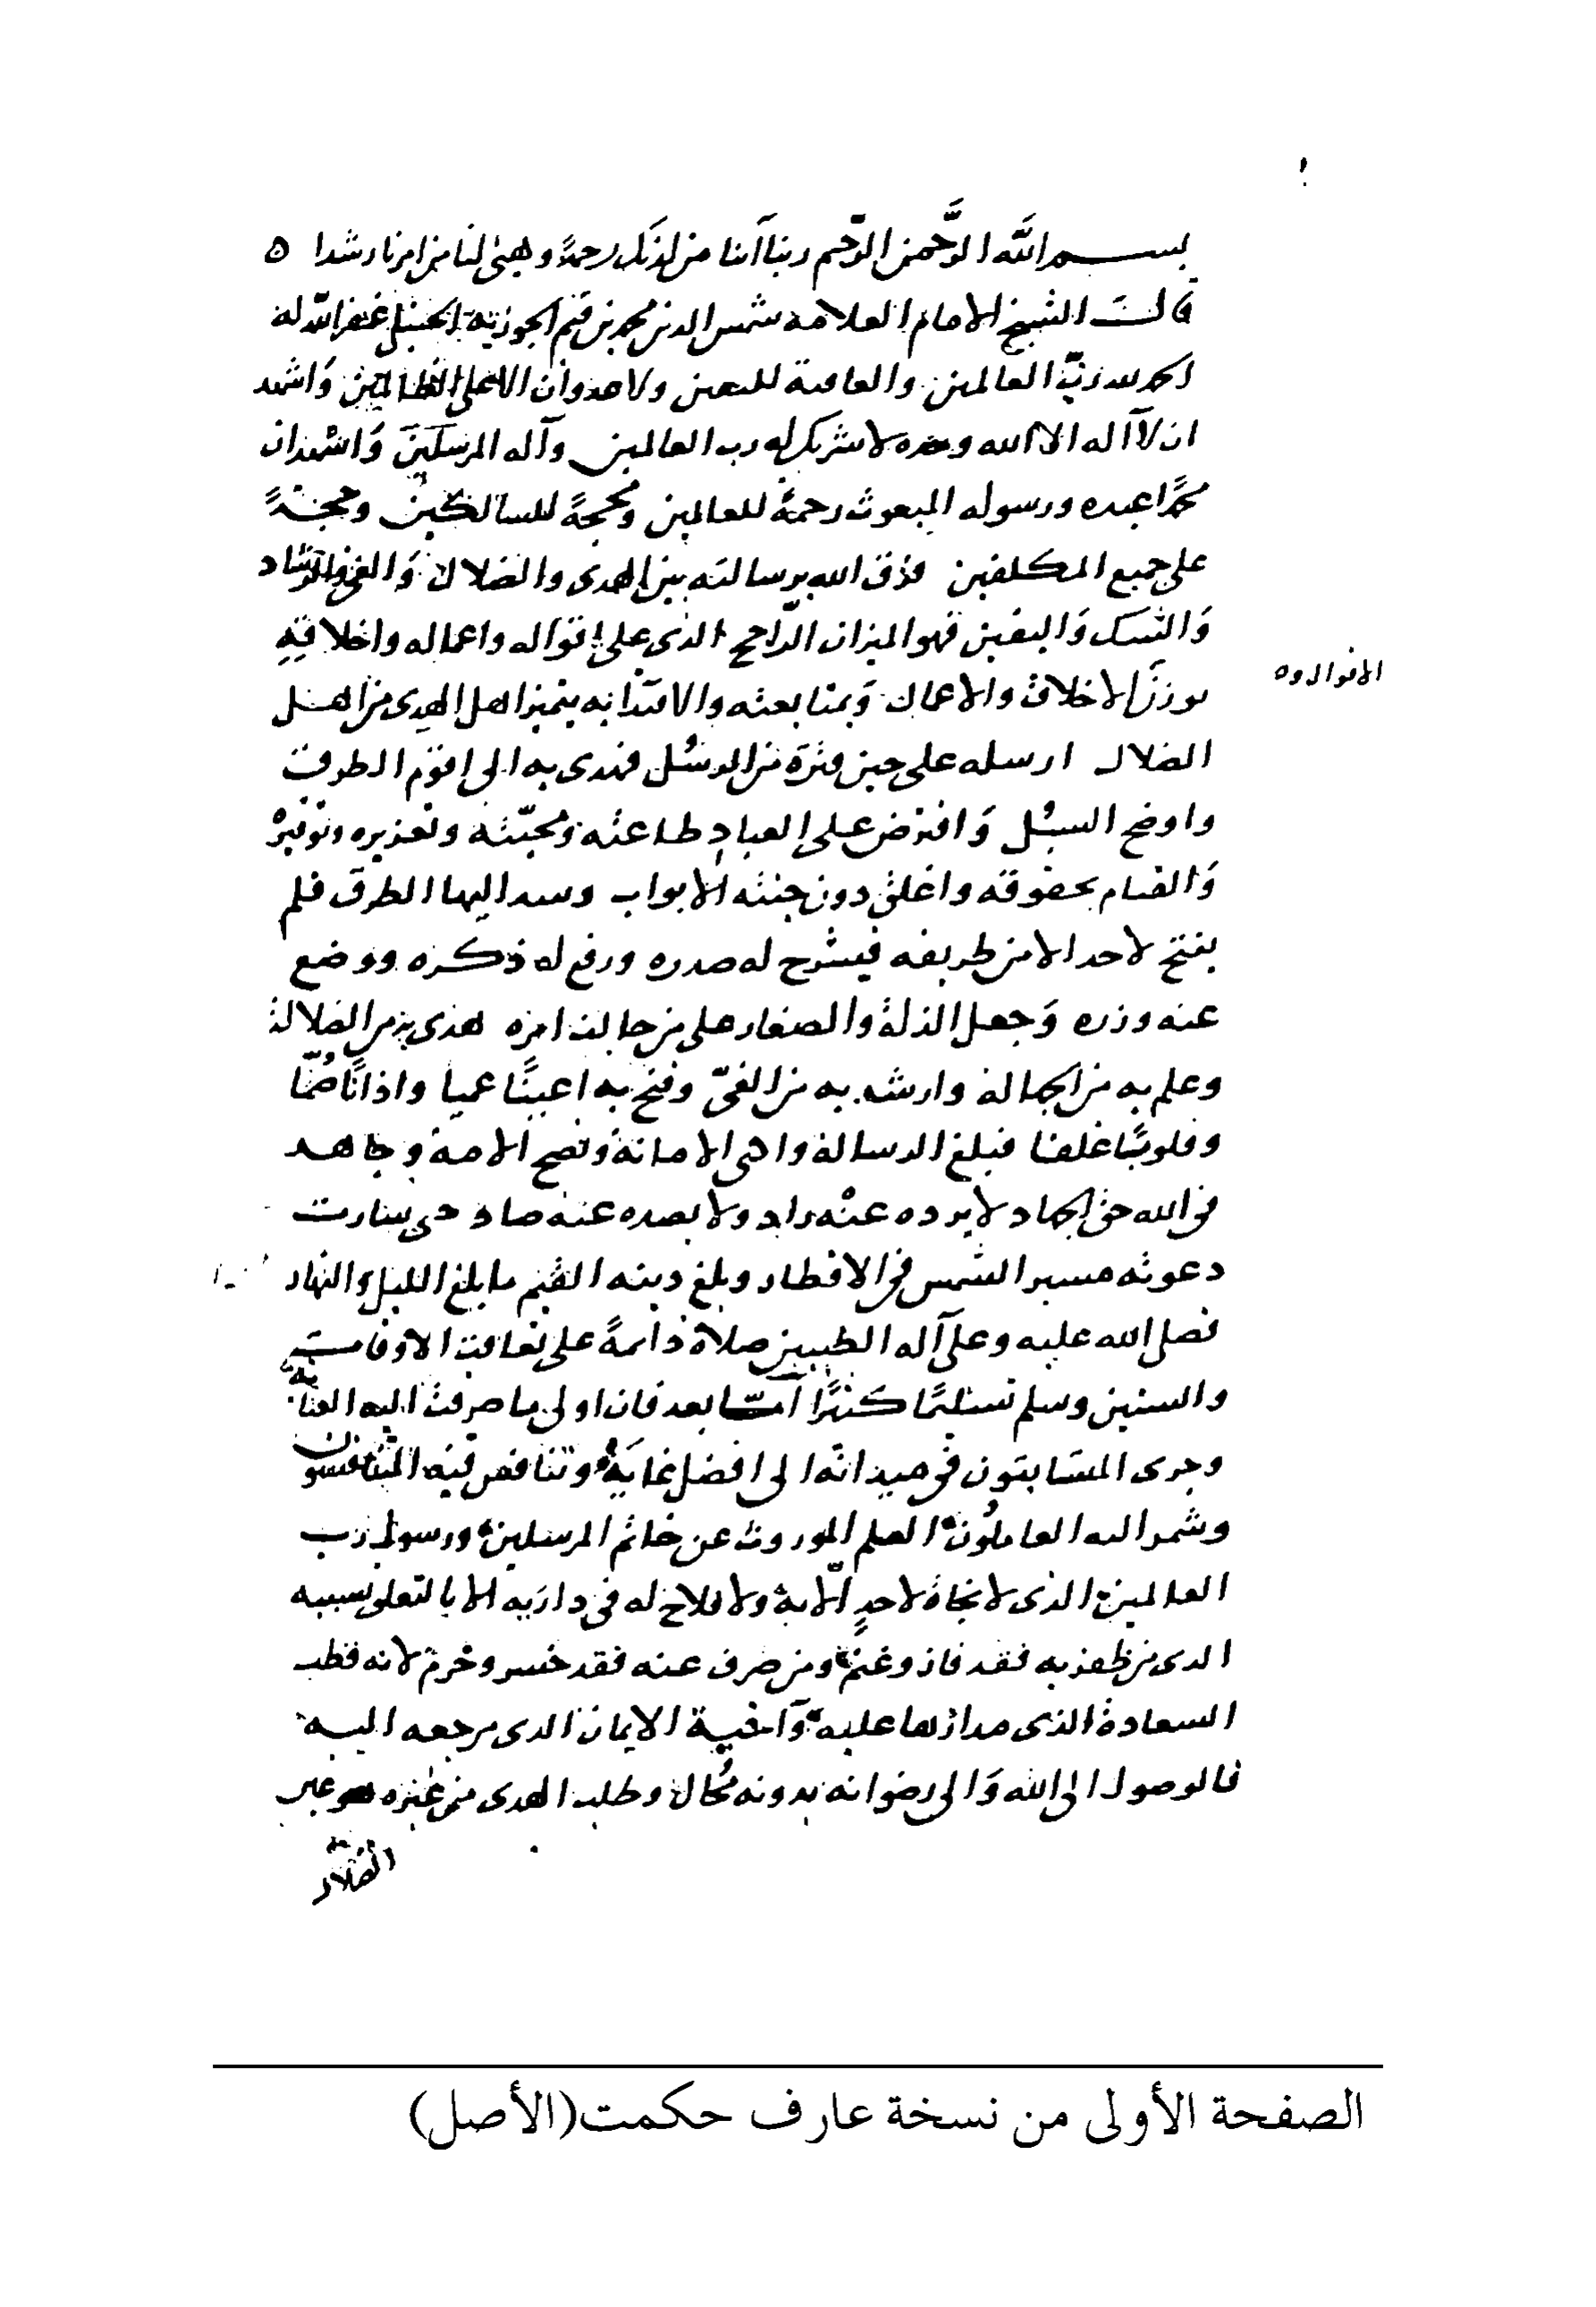 بسم الله الرَّحمن الرَّحيم ربنا آتنا من لدنك رحمة وهيئ لنا من امرنا رشدا ه
قال الشيخ الامام العلامة شمس الدين محمد بن قيم الجوزية الحنبلي غفر الله له
الحمد لله ربّ العالمين والعاقبة للمتقين ولا عدوان الا على الظالمين وَاشهد
ان لا اله الا الله وحده لا شريك له رب العالمين وآله المرسلين وَاشهد ان
محمدًا عبده ورسوله المبعوث رحمةً للعالمين ومحجةً للسالكين وحجةً
على جميع المكلفين فرق الله برسالته بين الهدى والضلال وَالغي والرشاد
وَالشك وَاليقين فهو الميزان الرّاجح الذي على اقواله واعماله واخلاقِهِ
توزنَ الاخلاق والاعمال وَبمتابعته والاقتدا به يتميز اهل الهدى من اهل
الاقوال و ه
الضلال ارسله على حين فترة من الرسُل فهدى به الى اقوَم الطرق
واوضح السبُل وَافترض على العبادِ طاعته ومحبّته وتعزيره وتوقيرهْ
وَالقيام بحقوقه واغلق دون جنته الابواب وسد اليها الطرق فلم
يفتح لاحد الا من طريقه فيشرح له صدره ورفع له ذكره ووضع
عنه وزره وَجعل الذلة والصغار على من خالف امره هدى به من الضلالة
وعلم به من الجهالة وارشد به من الغيّ وفتح به اعينًا عميا واذانًا صُمًّا
وقلوبًا غلفا فبلغ الرسالة وادى الامانة ونصح الامة وجاهد
في الله حق الجهاد لا يرده عنْه راد ولا يصده عنه صاد حى سارت
دعوته مسير الشمس في الاقطار وبلغ دينه القيم ما بلغ الليل والنهار
فصلى الله عليه وعلى آله الطيبين صلاة دائمةً على تعاقب الاوقات
والسنين وسلم تسليمًا كثيرًا امّا بعد فان اولى ما صرفت اليه العنايه
وجرى المتسَابقون في ميدانه الى افضل غايَة وتنافس فيه المتنافسون
وشمر اليه العاملُون العلم الموروث عن خاتم المرسلين ورسول رب
العالمين الذى لا نجاة لاحدٍ الّا به ولا فلاح له في داريه الا بالتعلق بسببه
الذى من ظفر به فقد فاز وغنم ومن صرف عنه فقد خسر وحُرم لانه قطب
السعادة الذى مدارها عليه وَآخية الايمان الذى مرجعه اليه
فالوصول الى الله وَالى رضوانه بدونه مُحال وطلب الهدى من غيره هو عين
الضلال
الصفحة الأولى من نسخة عارف حكمت(الأصل)